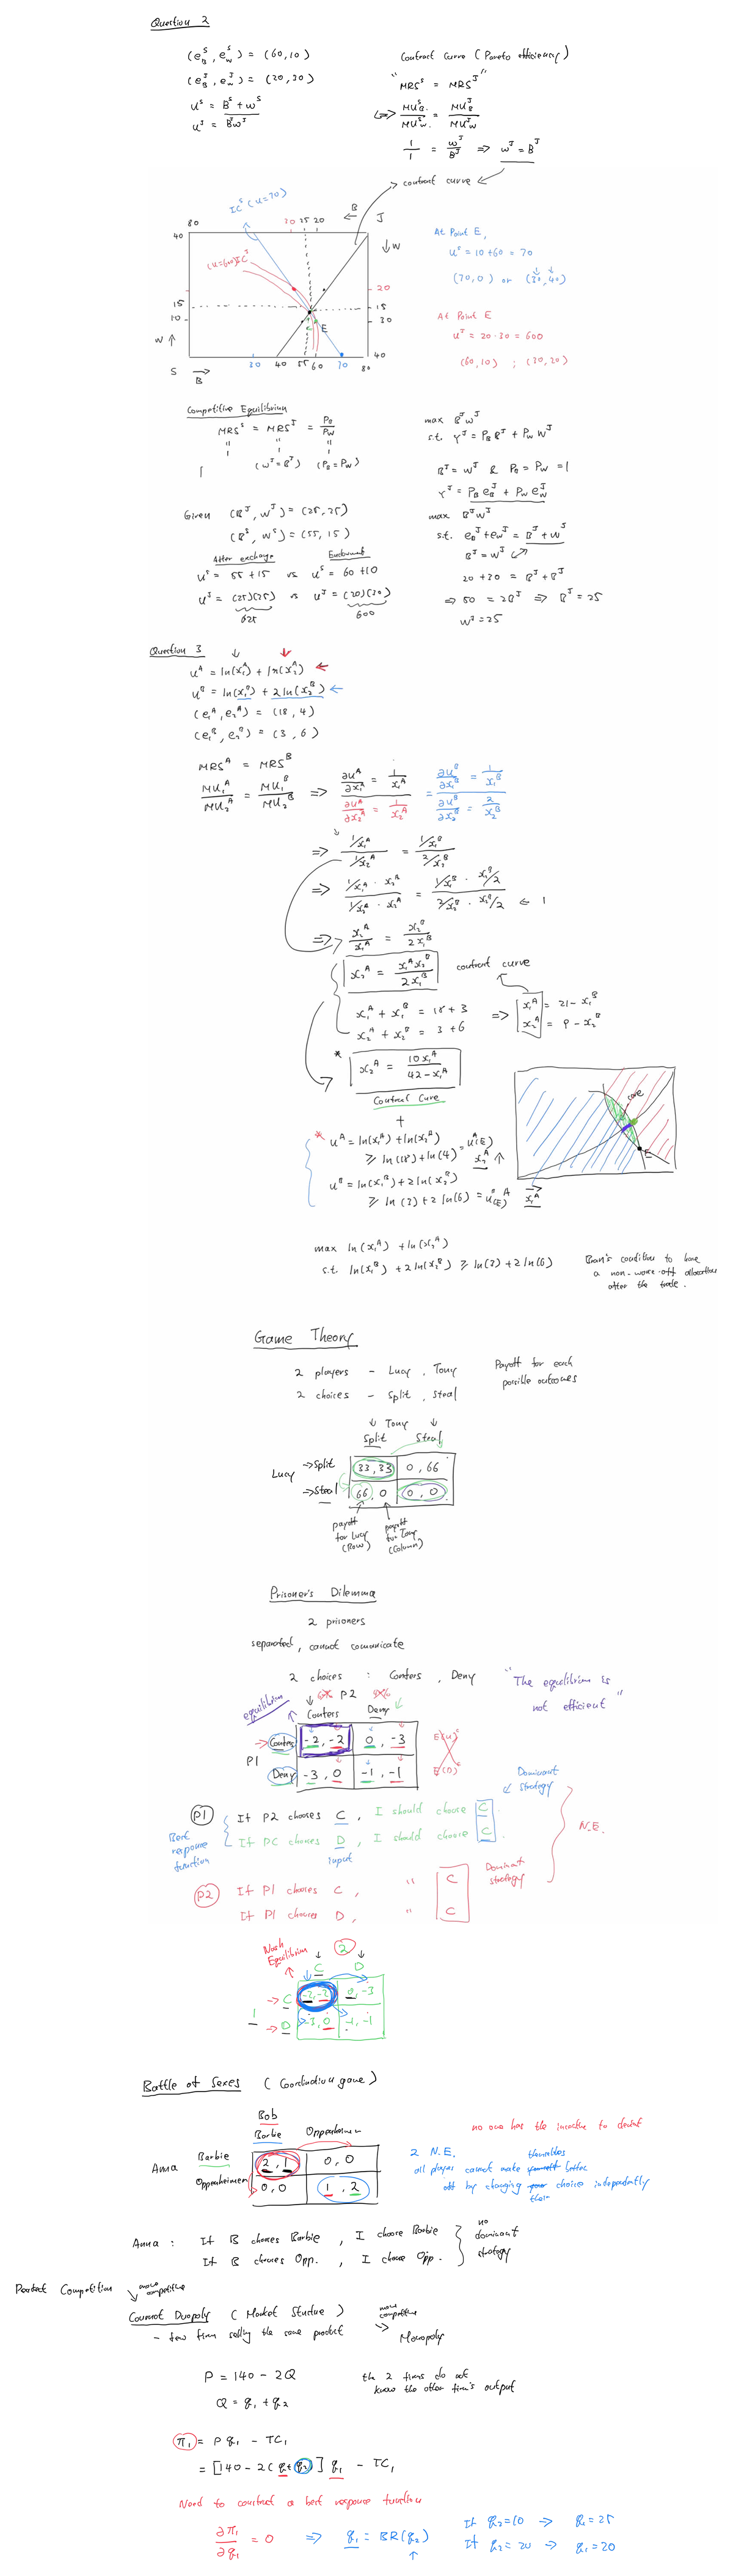 Question 2
(e_B^S, e_W^S) = (60,10)
(e_B^J, e_W^J) = (20,30)
U^S = B^S + W^S
U^J = B^J W^J
Contract Curve (Pareto efficiency)
"MRS^S = MRS^J"
<=> MU_B^S / MU_W^S = MU_B^J / MU_W^J
1/1 = W^J / B^J => W^J = B^J
contract curve
IC^S (U=70)
80 30 25 20 B J
40
↓W
(U=600) IC^J
20
15 15
10 30
E
W ↑
40
S 30 40 55 60 70 80
B
At Point E,
U^S = 10+60 = 70
(70,0) or (30,40)
At Point E
U^J = 20·30 = 600
(60,10) ; (30,20)
Competitive Equilibrium
MRS^S = MRS^J = P_B / P_W
1 (W^J = B^J) (P_B = P_W)
Given (B^J, W^J) = (25,25)
(B^S, W^S) = (55,15)
After exchange Endowment
U^S = 55+15 vs U^S = 60+10
U^J = (25)(25) vs U^J = (20)(30)
625 600
max B^J W^J
s.t. Y^J = P_B B^J + P_W W^J
B^J = W^J & P_B = P_W = 1
Y^J = P_B e_B^J + P_W e_W^J
max B^J W^J
s.t. e_B^J + e_W^J = B^J + W^J
B^J = W^J
20+30 = B^J + B^J
=> 50 = 2B^J => B^J = 25
W^J = 25
Question 3
u^A = ln(x_1^A) + ln(x_2^A)
u^B = ln(x_1^B) + 2ln(x_2^B)
(e_1^A, e_2^A) = (18, 4)
(e_1^B, e_2^B) = (3, 6)
MRS^A = MRS^B
MU_1^A / MU_2^A = MU_1^B / MU_2^B => ∂u^A/∂x_1^A = 1/x_1^A = ∂u^B/∂x_1^B = 1/x_1^B
∂u^A/∂x_2^A = 1/x_2^A ∂u^B/∂x_2^B = 2/x_2^B
=> (1/x_1^A) / (1/x_2^A) = (1/x_1^B) / (2/x_2^B)
=> (1/x_1^A · x_2^A) / (1/x_2^A · x_2^A) = (1/x_1^B · x_2^B/2) / (2/x_2^B · x_2^B/2) ← 1
=> x_2^A / x_1^A = x_2^B / 2x_1^B
x_2^A = x_1^A x_2^B / 2x_1^B contract curve
x_1^A + x_1^B = 18+3 => x_1^A = 21 - x_1^B
x_2^A + x_2^B = 3+6 x_2^A = 9 - x_2^B
* x_2^A = 10x_1^A / 42 - x_1^A
Contract Curve
+
core
E
* u^A = ln(x_1^A) + ln(x_2^A)
≥ ln(18) + ln(4) = u^A(E)
x_2^A ↑
u^B = ln(x_1^B) + 2ln(x_2^B)
≥ ln(3) + 2ln(6) = u^B(E)
x_1^A
max ln(x_1^A) + ln(x_2^A)
s.t. ln(x_1^B) + 2ln(x_2^B) ≥ ln(3) + 2ln(6)
Bran's condition to have
a non-worse-off allocation
after the trade.
Game Theory
2 players - Lucy, Tony
2 choices - Split, Steal
Payoff for each
possible outcomes
↓ Tony ↓
Split Steal
Lucy →Split 33, 33 0, 66
→Steal 66, 0 0, 0
payoff for Lucy (Row)
payoff for Tony (Column)
Prisoner's Dilemma
2 prisoners
separated, cannot communicate
2 choices : Confers, Deny
"The equilibrium is
not efficient"
equilibrium
P2
Confers Deny
P1 Confers -2, -2 0, -3
Deny -3, 0 -1, -1
E(U)
E(D)
P1 If P2 chooses C, I should choose C
If PC chooses D, I should choose C.
Best response function
input
Dominant strategy
N.E.
P2 If P1 chooses C, " C
If P1 chooses D, " C
Dominant strategy
Nash Equilibrium
2
C D
1 → C -2, -2 0, -3
→ D -3, 0 -1, -1
Battle of Sexes (Coordination game)
Bob
Barbie Oppenheimer
Anna Barbie 2, 1 0, 0
Oppenheimer 0, 0 1, 2
no one has the incentive to deviat
2 N.E.
themselves
all player cannot make yourself better
off by changing your choice independently
their
Anna : If B chooses Barbie, I choose Barbie
If B chooses Opp., I choose Opp.
no dominant strategy
Perfect Competition
more competitive
Cournot Duopoly (Market Structure)
- few firm selling the same product
more competitive
Monopoly
P = 140 - 2Q
Q = q_1 + q_2
the 2 firms do not
know the other firm's output
π_1 = P q_1 - TC_1
= [140 - 2(q_1+q_2)] q_1 - TC_1
Need to construct a best response function
∂π_1/∂q_1 = 0 => q_1 = BR(q_2)
If q_2=10 → q_1=25
If q_2=20 → q_1=20